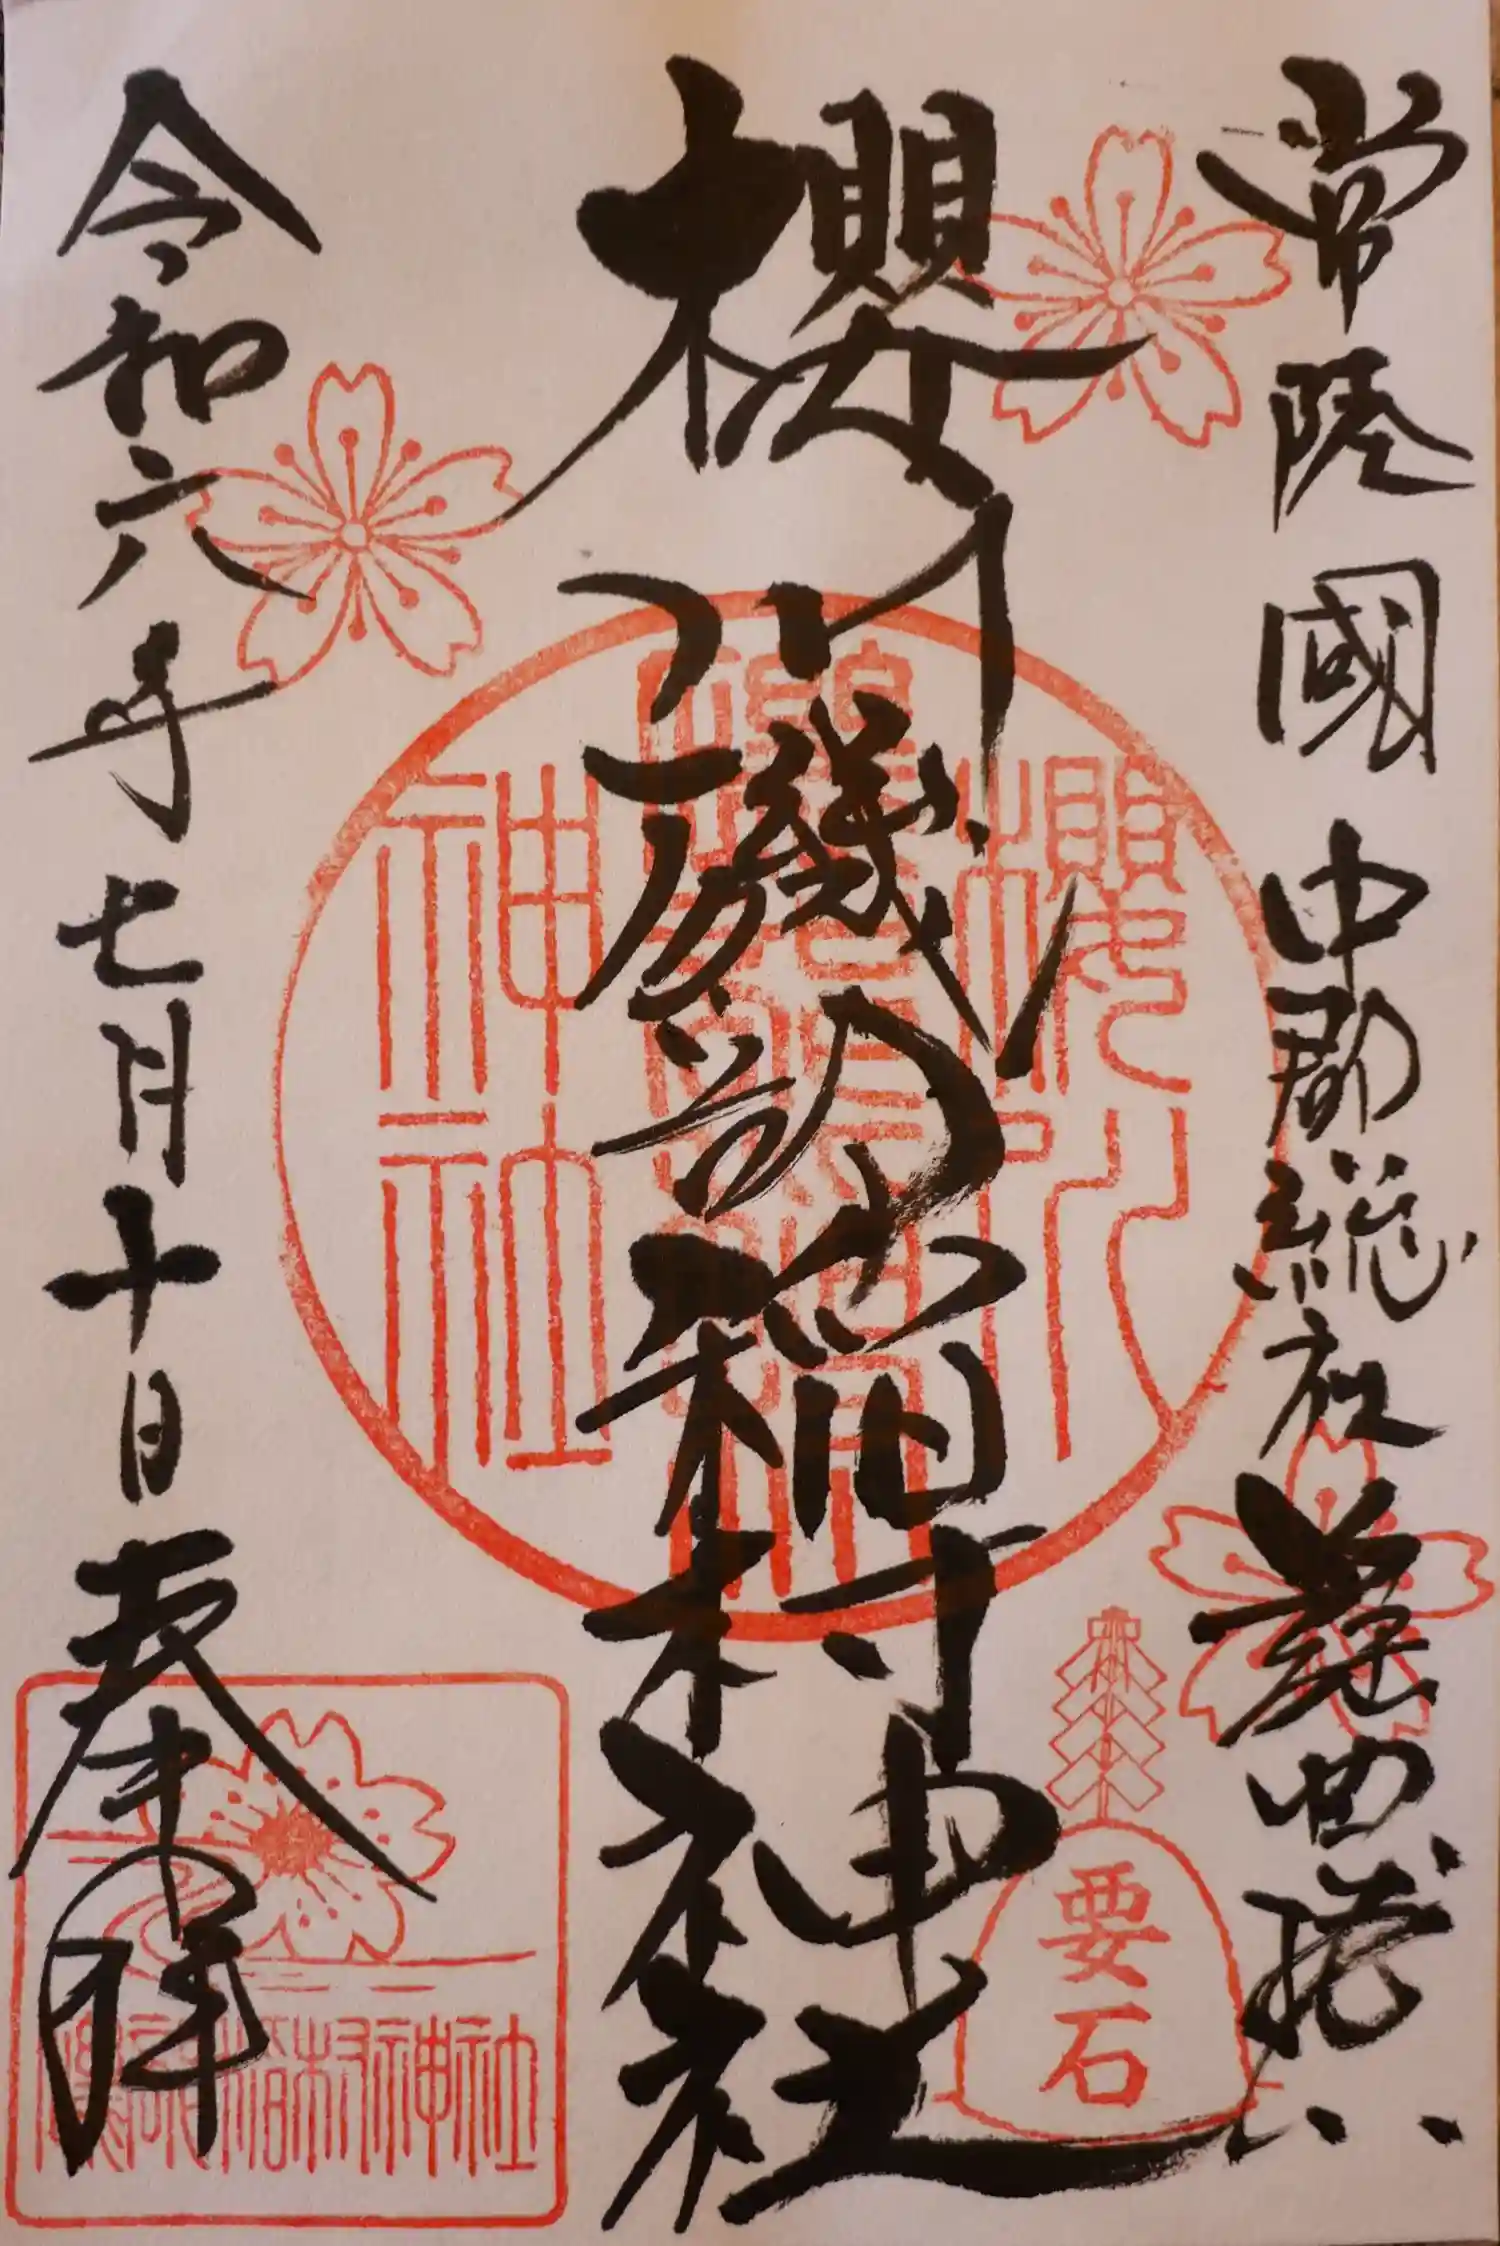 常陸國中郡総社 謡曲発祥
櫻川磯部稲村神社
令和六年七月十日 奉拝
櫻川
神社
要石
磯部稲村神社